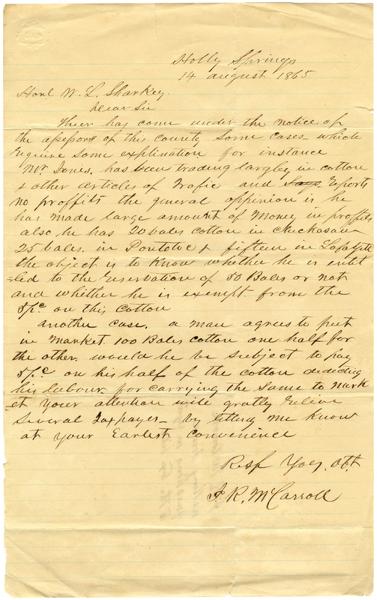 Holly Springs
14 august 1865
Honl W. L. Sharkey
Dear Sir
Their has come under the notice of
the assessors of this county Some cases which
require some explination for instance
Mr Jones. has been trading largley in cotton
& other articles of Trafic and reports
no proffits the general oppinion is he
has made large amount of Money in profits
also he has 20 bales cotton in Chickasaw
25 bales. in Pontotoc & fifteen in Lafayette
the object is to Know whether he is entit
-led to the reservation of 50 Bales or not
and whether he is exempt from the
on this Cotton
another case. a man agrees to put
in Market 100 Bales cotton one half for
the other. would he be subject to pay
on his half of the cotton deducting
his labour for carrying the same to Mark
et your attention will gratly relieve
several Taxpayers - by letting me know
at your Earliest convenience
Resp Yours Obt
J. R. McCarroll